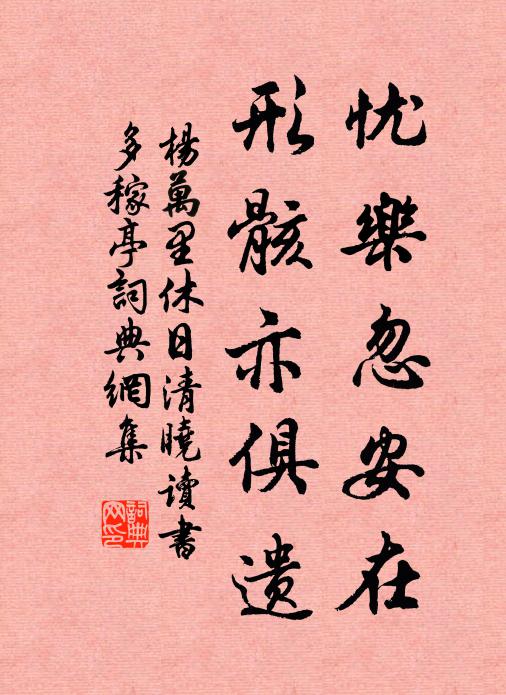 忧樂忽安在
形骸亦俱遗
楊萬里休日清曉读書
多稼亭詞典網集
詞典
网印